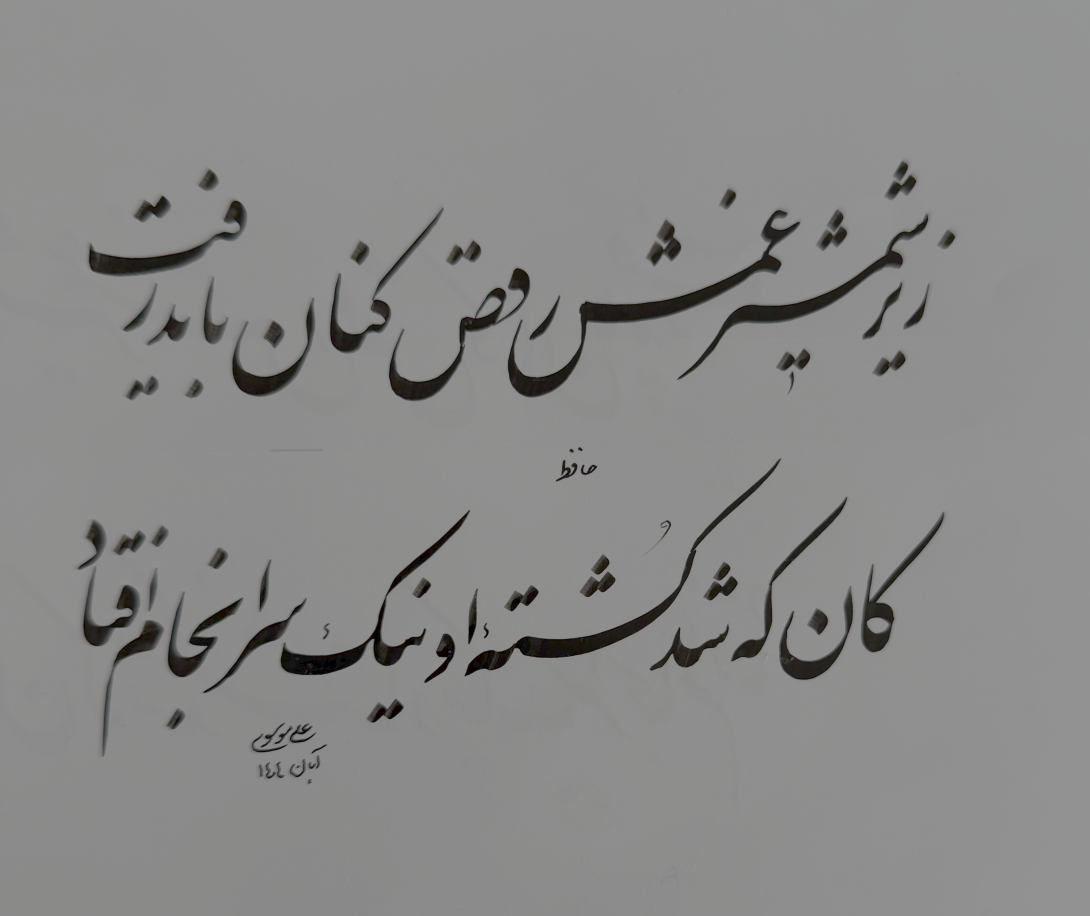 زیر شمشیر غمش رقص کنان باید رفت
حافظ
کان که شد کشتهٔ او نیک سرانجام افتاد
علی موسوی
آبان ۱۴۰۴